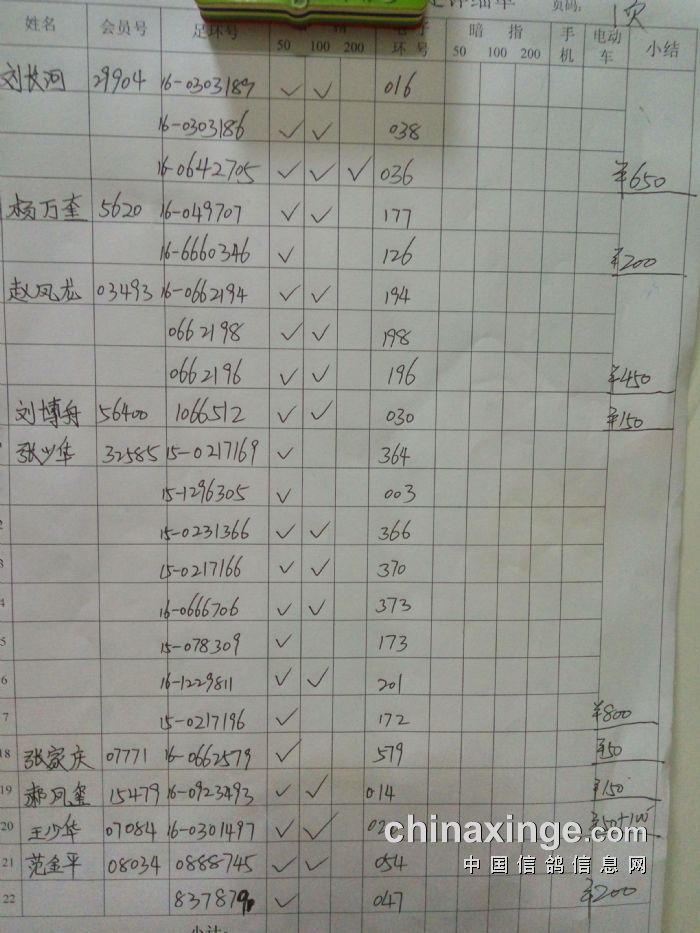 页码: 1次
姓名 会员号 足环号 50 100 200 环号 暗 指 50 100 200 手机 电动车 小结
刘长河 29904 16-0303189 ✓ ✓ 016
16-0303186 ✓ ✓ 038
16-0642705 ✓ ✓ ✓ 036 ¥650
杨万奎 5620 16-049707 ✓ ✓ 177
16-6660346 ✓ 126 ¥200
赵凤龙 03493 16-0662194 ✓ ✓ 194
0662198 ✓ ✓ 198
0662196 ✓ ✓ 196 ¥450
刘博舟 56400 1066512 ✓ ✓ 030 ¥150
张少华 32585 15-0217169 ✓ 364
15-1296305 ✓ 003
2 15-0231366 ✓ ✓ 366
3 15-0217166 ✓ ✓ 370
4 16-0666706 ✓ ✓ 373
5 15-078309 ✓ 173
6 16-1229811 ✓ ✓ 201
7 15-0217196 ✓ 172 ¥800
18 张家庆 07771 16-0662579 ✓ 579 ¥50
19 郝凤玺 15479 16-0923493 ✓ ✓ 014 ¥150
20 王少华 07084 16-0301497 ✓ ✓
chinaxinge.com
21 范金平 08034 0888745 ✓ ✓ 054
中国信鸽信息网
22 837879 ✓ 047 ¥200
小计: